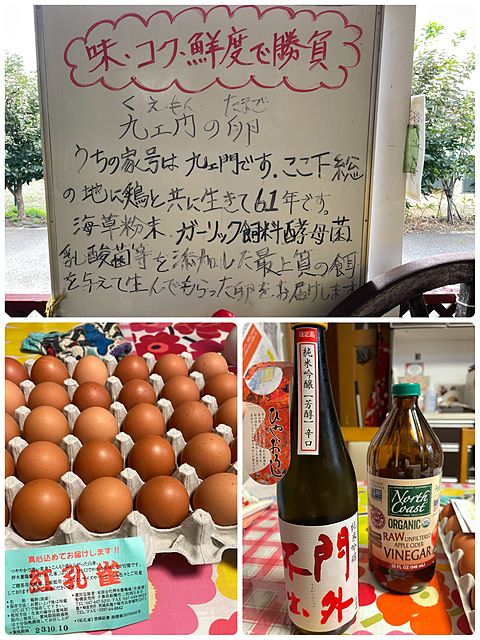 味・コク・鮮度で勝負
くえもん たまご
九ェ門の卵
うちの家号は九ェ門です。ここ下総
の地に鶏と共に生きて61年です。
海草粉末、ガーリック飼料酵母菌
乳酸菌等を添加した最上質の餌
を与えて生んでもらった卵をお届けします
真心込めてお届けします!!
紅孔雀
23.10.10
限定品
純米吟醸【芳醇】辛口
ひやおろし
純米吟醸
門外
不出
North
Coast
ORGANIC
RAW UNFILTERED
APPLE CIDER
VINEGAR
32 FL OZ (946 mL)